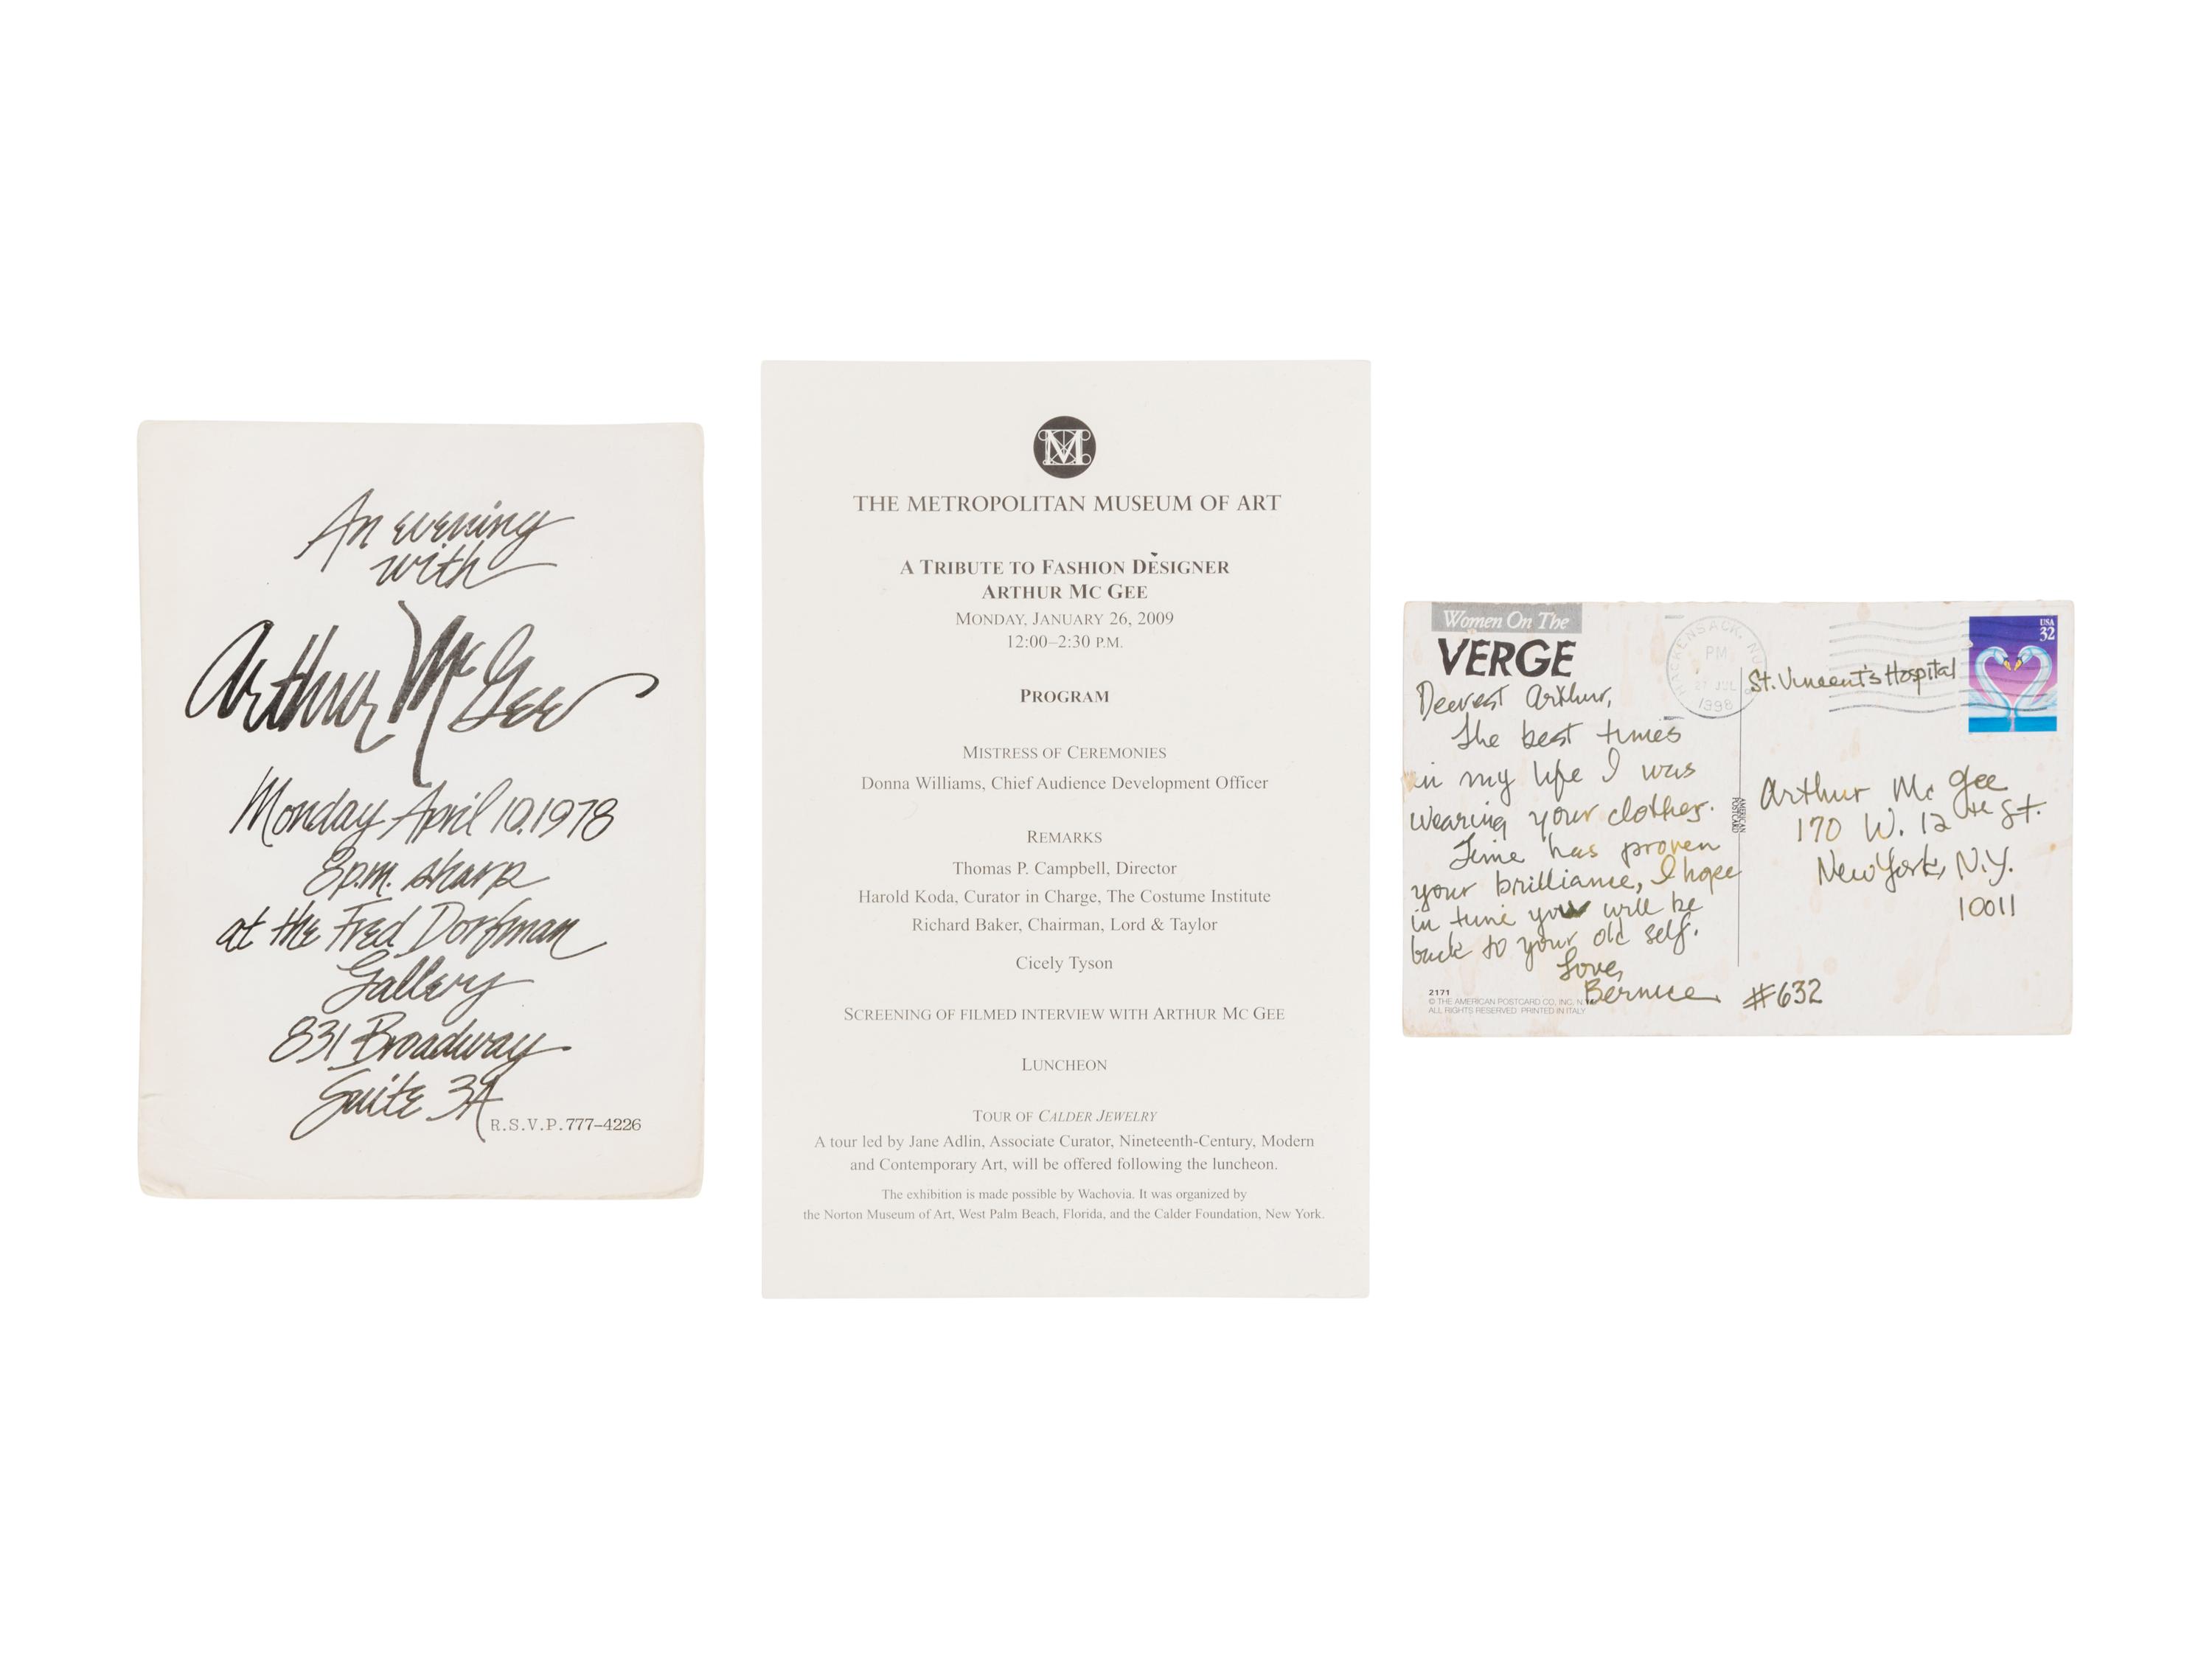 An evening
with
Arthur McGee
Monday April 10, 1978
8 p.m. sharp
at the Fred Dorfman
Gallery
831 Broadway
Suite 3A
R.S.V.P. 777-4226
M
THE METROPOLITAN MUSEUM OF ART
A TRIBUTE TO FASHION DESIGNER
ARTHUR MC GEE
MONDAY, JANUARY 26, 2009
12:00–2:30 P.M.
PROGRAM
MISTRESS OF CEREMONIES
Donna Williams, Chief Audience Development Officer
REMARKS
Thomas P. Campbell, Director
Harold Koda, Curator in Charge, The Costume Institute
Richard Baker, Chairman, Lord & Taylor
Cicely Tyson
SCREENING OF FILMED INTERVIEW WITH ARTHUR MC GEE
LUNCHEON
TOUR OF CALDER JEWELRY
A tour led by Jane Adlin, Associate Curator, Nineteenth-Century, Modern
and Contemporary Art, will be offered following the luncheon.
The exhibition is made possible by Wachovia. It was organized by
the Norton Museum of Art, West Palm Beach, Florida, and the Calder Foundation, New York.
Women On The
VERGE
Dearest Arthur,
The best times
in my life I was
wearing your clothes.
Time has proven
your brilliance, I hope
in time you will be
back to your old self.
Love,
Bernice
2171
© THE AMERICAN POSTCARD CO, INC. N.Y.
ALL RIGHTS RESERVED PRINTED IN ITALY
AMERICAN
POSTCARD
HACKENSACK, NJ
PM
JUL
1998
USA
32
St. Vincent's Hospital
Arthur Mc Gee
170 W. 12th St.
New York, N.Y.
10011
#632